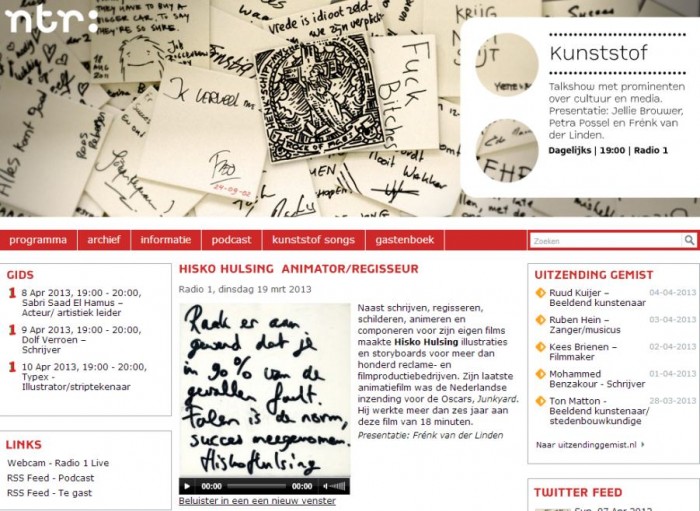 ntr:
THEY HAVE TO BUY A
BIGGER CAR. TO SAY
THEY'RE SO SURE.
Vrede is idioot zolang
we zijn verplicht
KRIJG
NIET
UIT
Fuck
Bitches
Ik verveel me
24-09-02
Alles komt goed
Nooit Wakker
Kunststof
Talkshow met prominenten
over cultuur en media.
Presentatie: Jellie Brouwer,
Petra Possel en Frénk van
der Linden.
Dagelijks | 19:00 | Radio 1
programma archief informatie podcast kunststof songs gastenboek Zoeken
GIDS
1 8 Apr 2013, 19:00 - 20:00,
Sabri Saad El Hamus –
Acteur/ artistiek leider
1 9 Apr 2013, 19:00 - 20:00,
Dolf Verroen –
Schrijver
1 10 Apr 2013, 19:00 - 20:00,
Typex -
Illustrator/striptekenaar
LINKS
Webcam - Radio 1 Live
RSS Feed - Podcast
RSS Feed - Te gast
HISKO HULSING ANIMATOR/REGISSEUR
Radio 1, dinsdag 19 mrt 2013
Raak er aan
gewend dat je
in 90% van de
gevallen faalt.
Falen is de norm,
succes meegenomen.
Hisko Hulsing
00:00 00:00
Beluister in een een nieuw venster
Naast schrijven, regisseren,
schilderen, animeren en
componeren voor zijn eigen films
maakte Hisko Hulsing illustraties
en storyboards voor meer dan
honderd reclame- en
filmproductiebedrijven. Zijn laatste
animatiefilm was de Nederlandse
inzending voor de Oscars, Junkyard.
Hij werkte meer dan zes jaar aan
deze film van 18 minuten.
Presentatie: Frénk van der Linden
UITZENDING GEMIST
Ruud Kuijer – 04-04-2013
Beeldend kunstenaar
Ruben Hein – 03-04-2013
Zanger/musicus
Kees Brienen – 02-04-2013
Filmmaker
Mohammed 01-04-2013
Benzakour - Schrijver
Ton Matton – 28-03-2013
Beeldend kunstenaar/
stedenbouwkundige
Naar uitzendinggemist.nl
TWITTER FEED
Sun, 07 Apr 2013